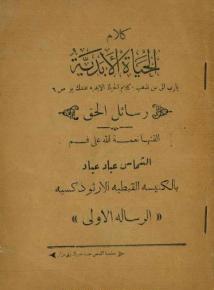 كلام
الحياة الأبدية
يارب الى من نذهب . كلام الحياة الابدية عندك يو ص ٦
رسائل الحق
القتها نعمة الله على فم
الشماس عياد عياد
بالكنيسه القبطيه الارثوذكسيه
« الرساله الاولى »